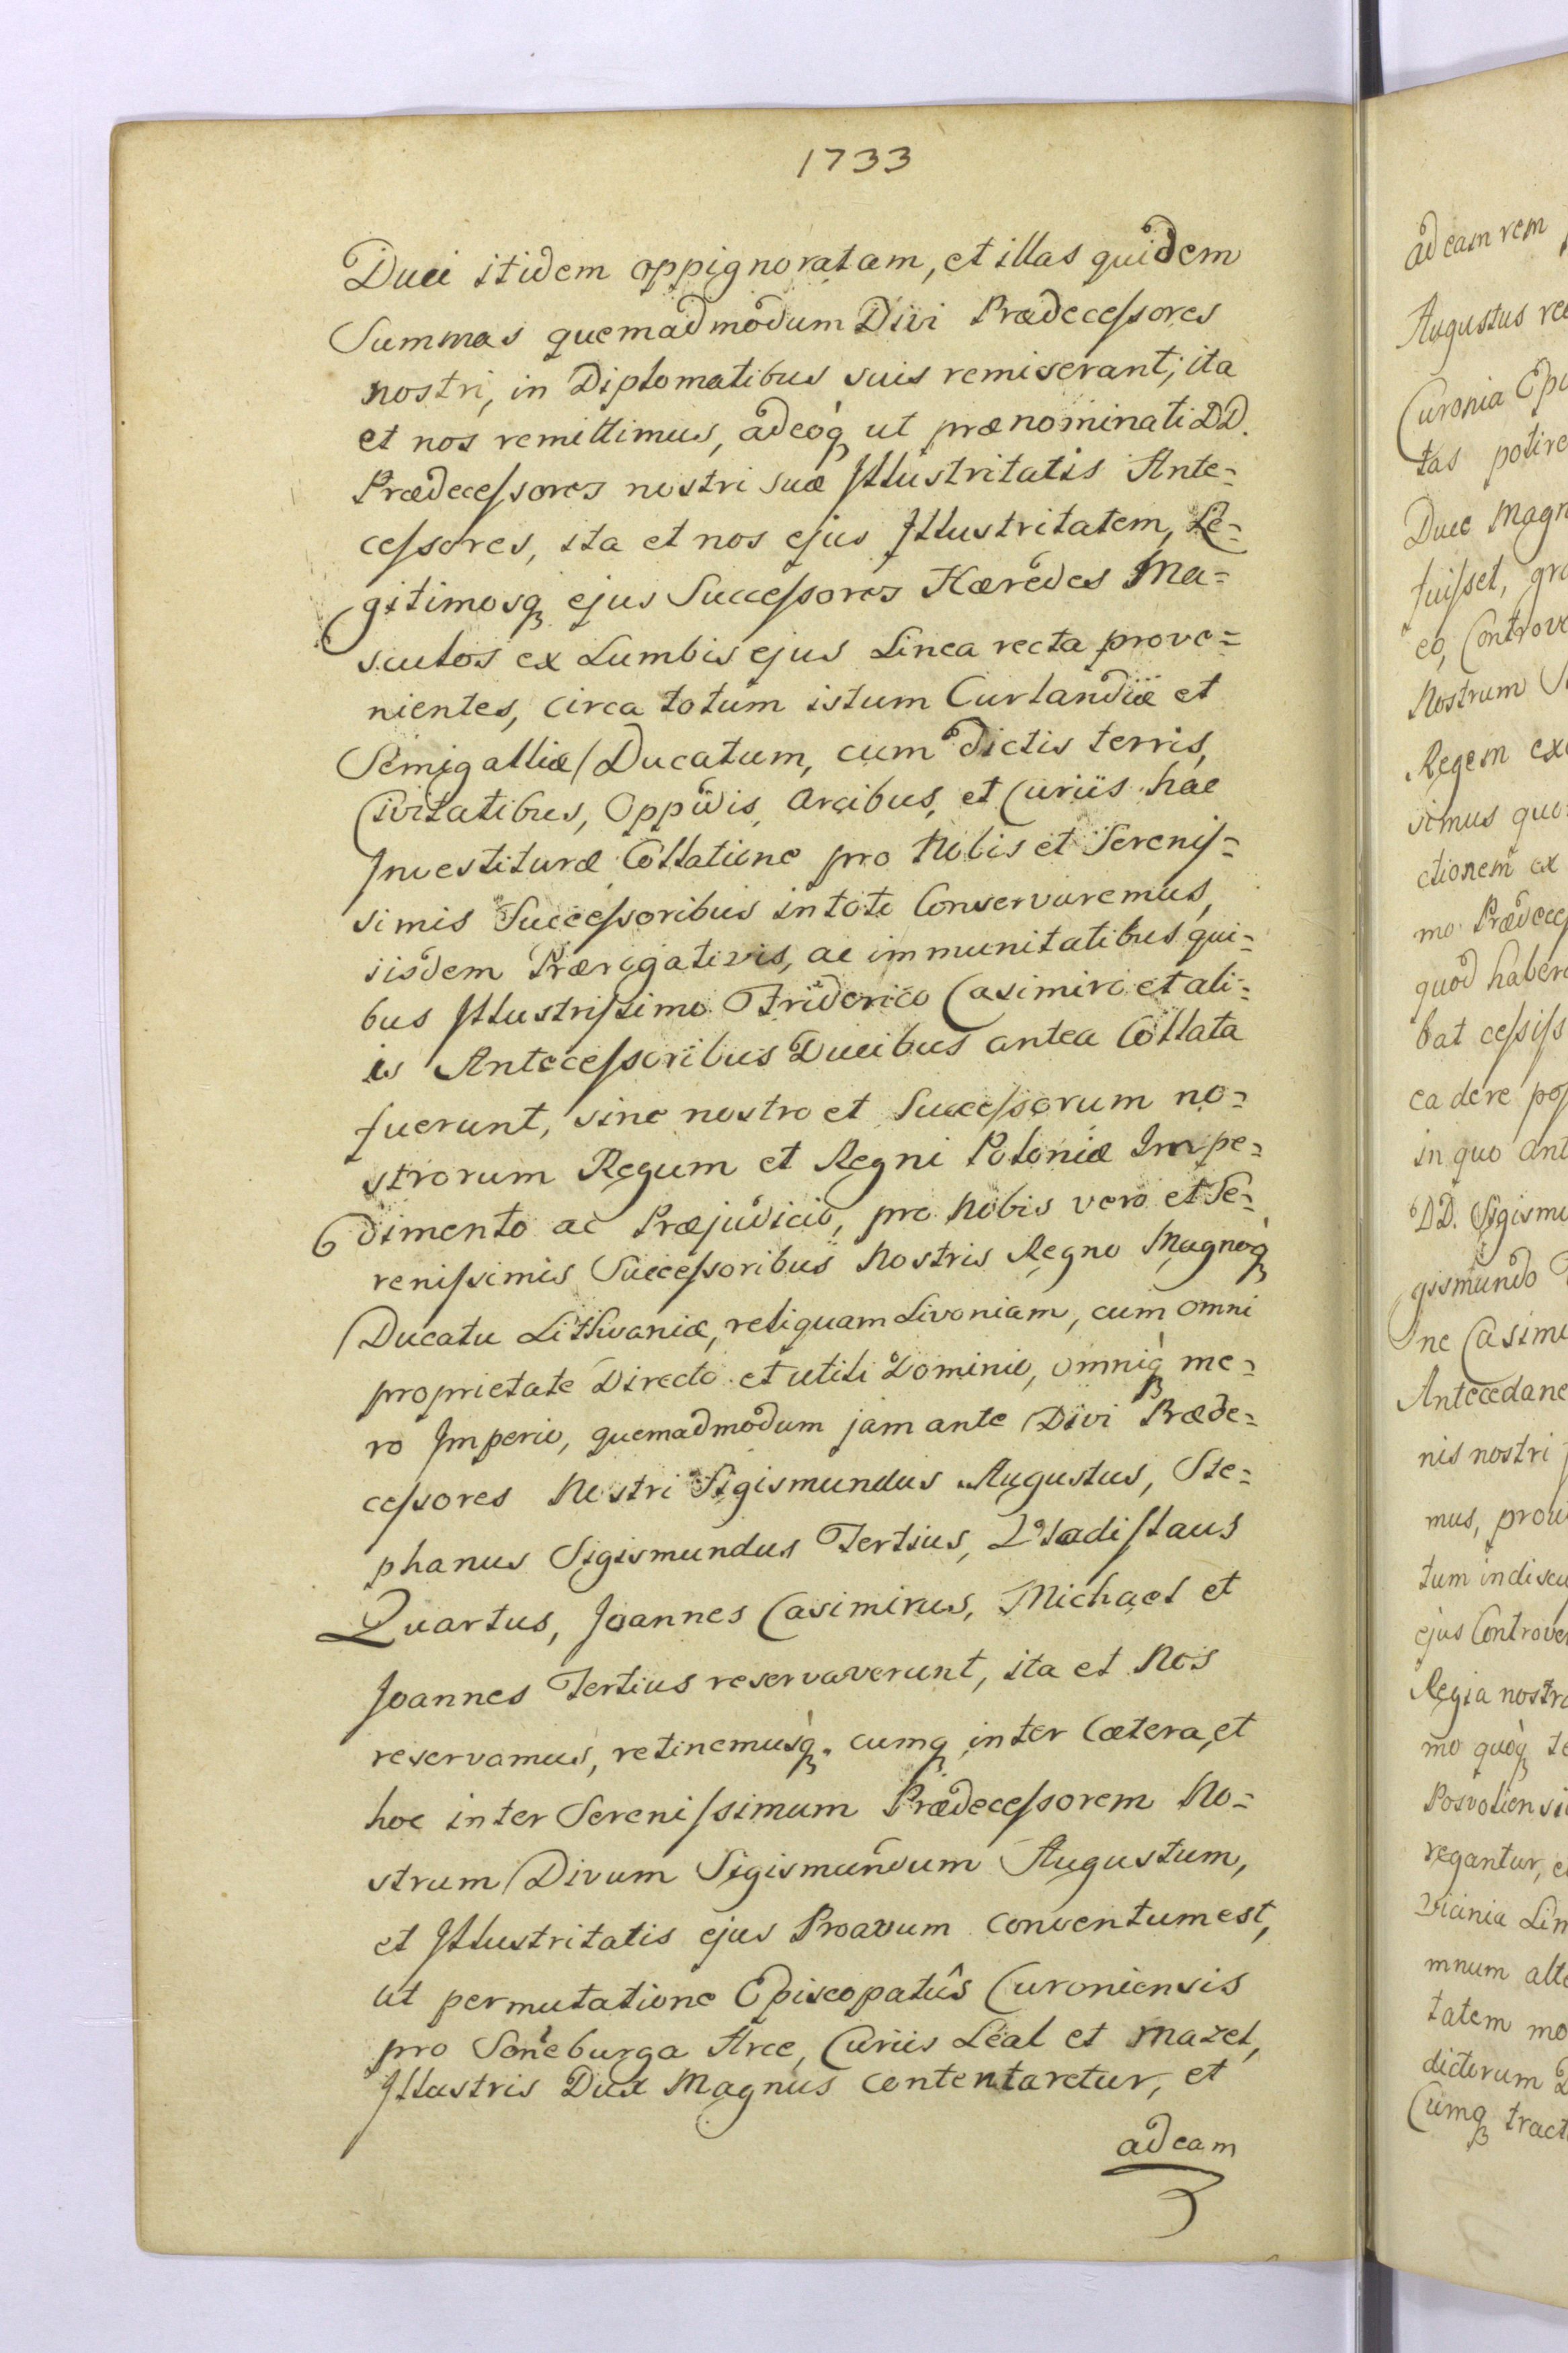 1733
Duci itidem oppignoratam, et illas quidem
Summas quemadmodum Divi Prædecessores
nostri, in Diplomatibus suis remiserant; ita
et nos remittimus, adeoq ut prænominati DD.
Prædecessores nostri suæ Illustritatis Ante=
cessores, ita et nos ejus Illustritatem, Le=
gitimosq ejus Successores Hæredes Ma=
sculos ex Lumbis ejus Linea recta prove=
nientes, circa totum istum Curlandiæ et
Semigalliæ Ducatum, cum dictis terris,
Civitatibus, Oppidis, Arcibus, et Curiis hac
Investituræ Collatione pro Nobis et Serenis=
simis Successoribus in toto Conservaremus,
iisdem Prærogativis, ac immunitatibus qui=
bus Illustrissimo Friderico Casimiro et ali=
is Antecessoribus Ducibus antea Collata
fuerunt, sine nostro et Successorum no=
strorum Regum et Regni Poloniæ Impe=
dimento ac Præjudicio, pro Nobis vero et Se=
renissimis Successoribus Nostris Regno Magnoq
Ducatu Lithvaniæ, reliquam Livoniam, cum omni
proprietate Directo et utili Dominio, omniq me=
ro Imperio, quemadmodum jam ante Divi Præde=
cessores Nostri Sigismundus Augustus, Ste=
phanus Sigismundus Tertius, Vladislaus
Quartus, Joannes Casimirus, Michael et
Joannes Tertius reservaverunt, ita et Nos
reservamus, retinemusq. cumq inter Cætera, et
hoc inter Serenissimum Prædecessorem No=
strum Divum Sigismundum Augustum,
et Illustritatis ejus Proavum conventum est,
ut permutatione Episcopatûs Curoniensis
pro Soneburga Arce, Curiis Léal et Mazel,
Illustris Dux Magnus contentaretur, et
ad eam
ad eam rem
Augustus re
Curonia Epi
tas potire
Duce Magn
fuisset, gra
eo, Controve
Nostrum
Regem ex
vimus quo
ctionem ex
mo Prædece
quod haber
bat cessiss
cadere pos
in quo ant
DD. Sigismu
gismundo
ne Casimi
Antecedane
nis nostri
mus, prou
tum indiscu
ejus Controver
Regia nostra
mo quoq te
Posvoliensi
regantur, e
vicinia Lim
mnum alte
tatem mo
dictorum
Cumq tract